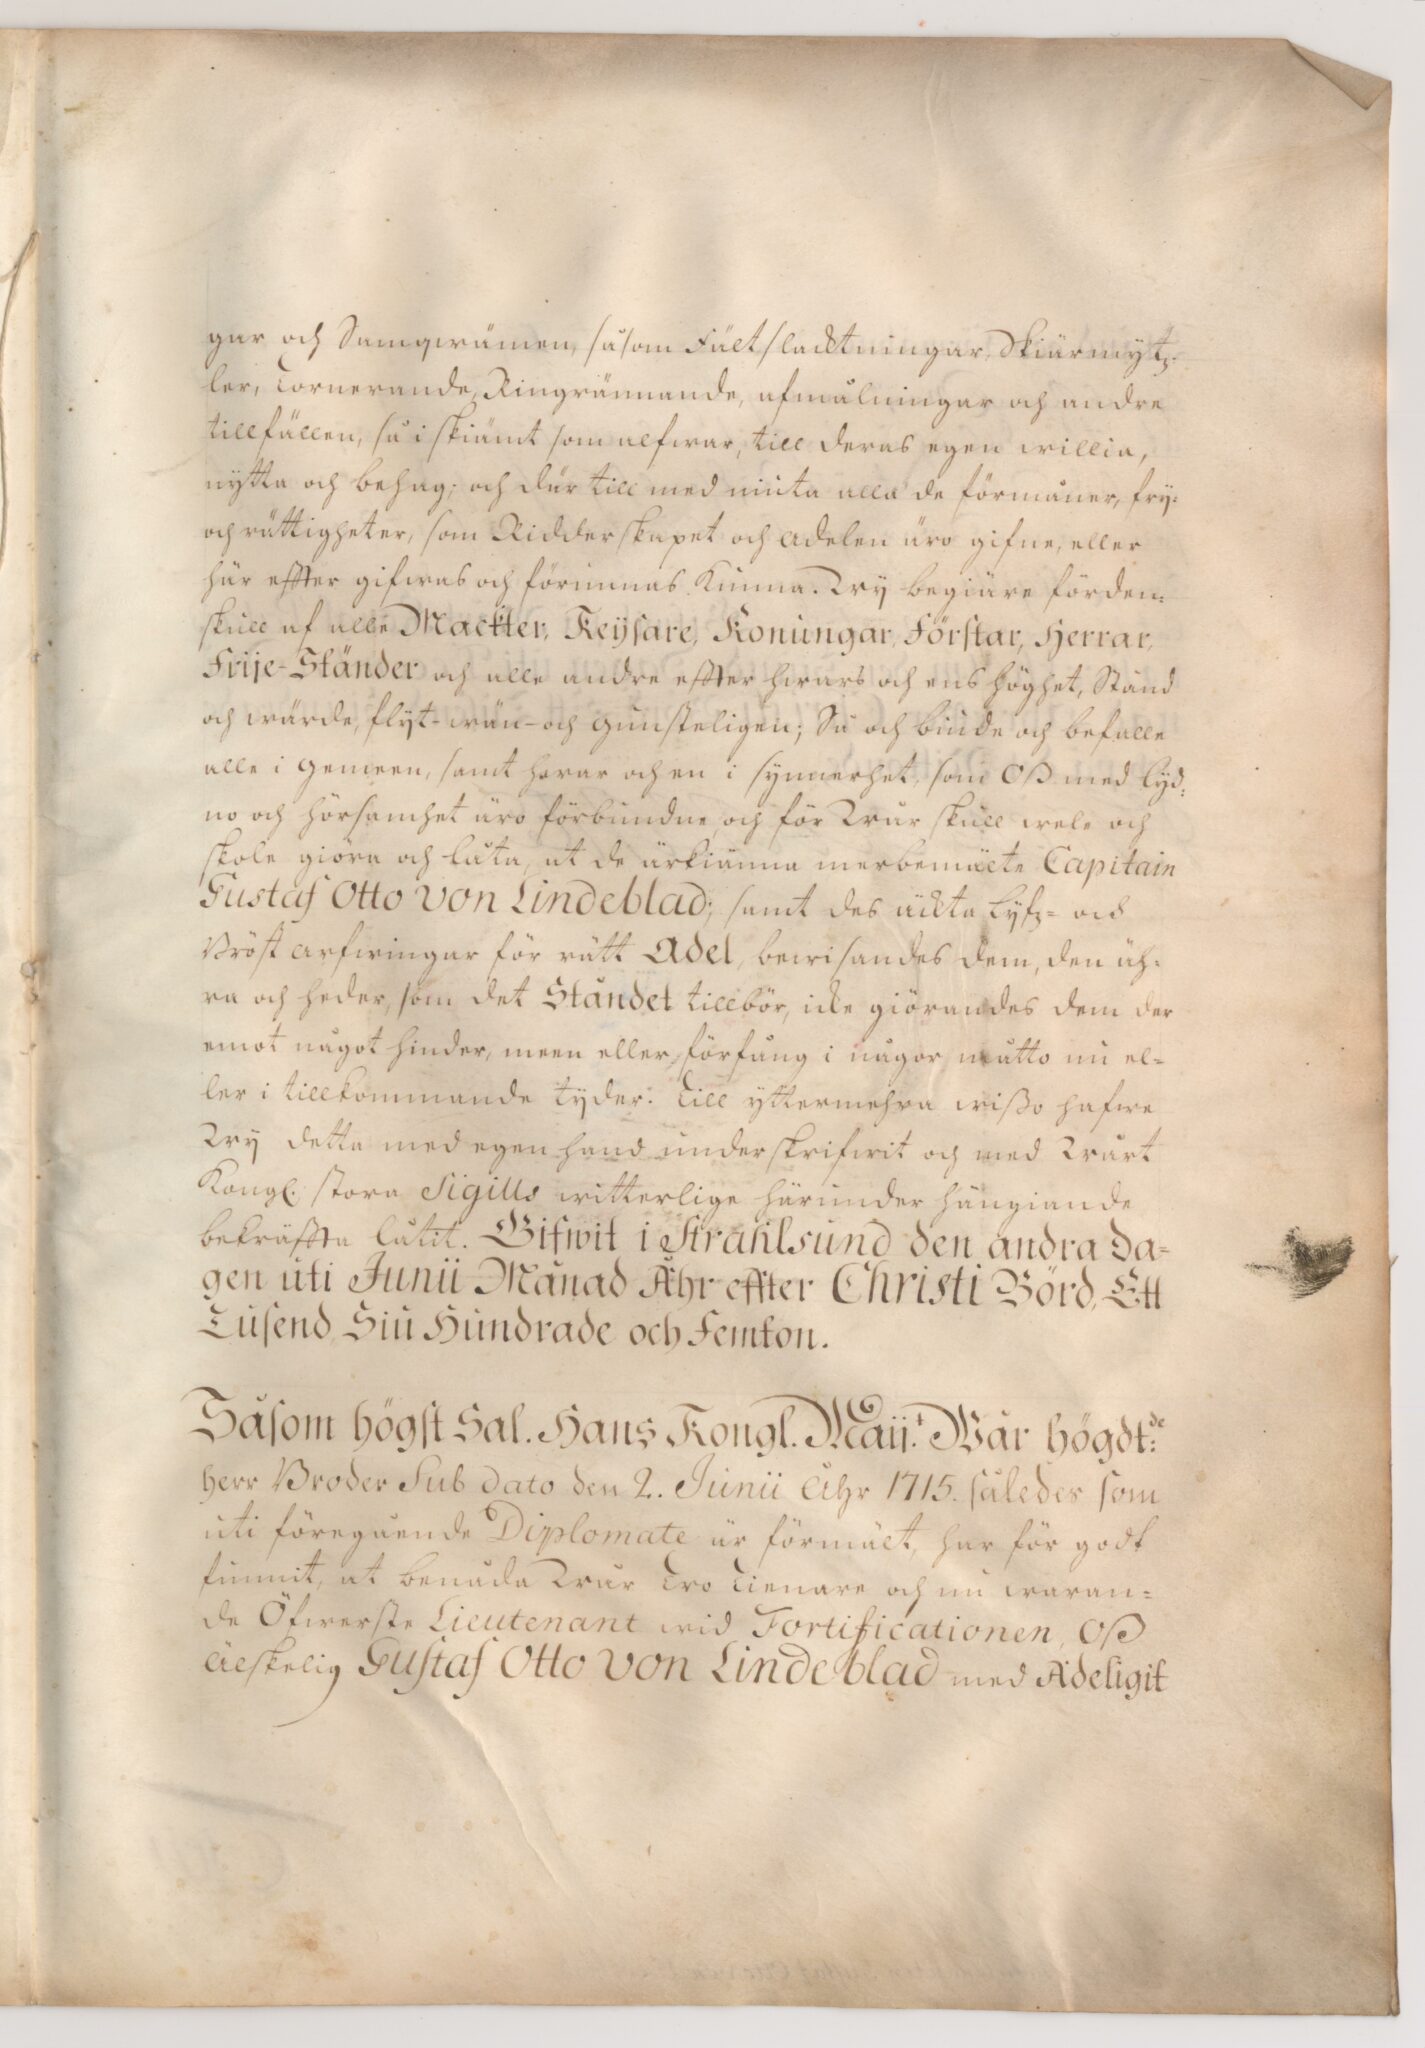 gar och Samqwämen, såsom Fältslacktningar, Skiärmytz-
ler, Tornerande, Ringrännande, afmålningar och andre
tillfällen, så i skiämt som alfwar, till deras egen willia,
nytta och behag; och där till med niuta alla de förmåner, fry-
och rättigheter, som Ridderskapet och Adelen äro gifne, eller
här effter gifwas och förunnas kunna. Wy begiäre förden-
skull af alle Mackter, Keysare, Konungar, Förstar, Herrar,
Frije-Ständer och alle andre effter hwars och ens höghet, Stånd
och wärde, flyt- wän- och gunsteligen; Så och biude och befalle
alle i Gemeen, samt hwar och en i synnerhet, som Oß med lyd-
no och hörsamhet äro förbundne, och för Wår skull wele och
skole giöra och låta, at de ärkiänna merbemälte Capitain
Gustaf Otto von Lindeblad; samt des äckta Lyfz- och
Bröst Arfwingar för rätt Adel, bewisandes dem, den äh-
ra och heder, som det Ståndet tillbör, icke giörandes dem der
emot något hinder, meen eller förfång i någor måtto nu el-
ler i tillkommande tyder. Till yttermehra wißo hafwe
Wy detta med egen hand underskrifwit och med Wårt
Kongl. stora Sigills witterlige härunder hängiande
bekräffta låtit. Gifwit i Strahlsund den andra Da-
gen uti Junii Månad Åhr effter Christi Börd, Ett
Tusend Siu Hundrade och Femton.
Såsom högst Sal. Hans Kongl. Maij:t Wår högdt:de
herr Broder Sub dato den 2. Junii Åhr 1715. således som
uti föregående Diplomate är förmält, har för godt
funnit, at benåda Wår Tro Tienare och nu waran-
de Öfwerste Lieutenant wid Fortificationen, Oß
älskelig Gustaf Otto von Lindeblad med Adeligit